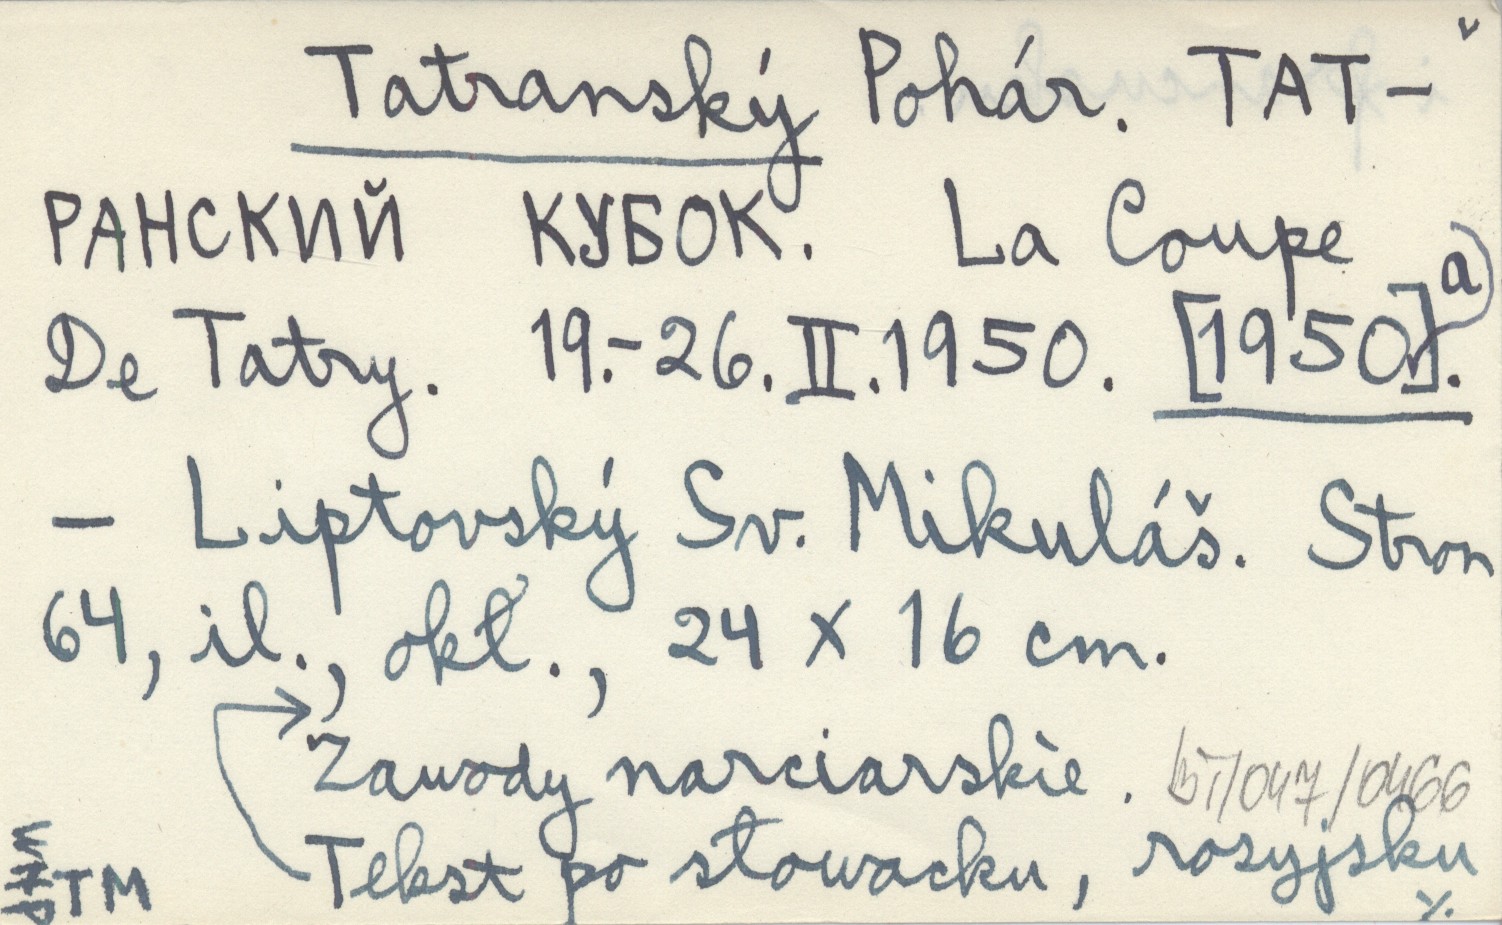 Tatranský Pohár. ТАТ-
РАНСКИЙ КУБОК. La Coupe
De Tatry. 19.-26.II.1950. [1950]. a)
- Liptovský Sv. Mikuláš. Stron
64, il., okł., 24 x 16 cm.
Zawody narciarskie.
Tekst po słowacku, rosyjsku
TM